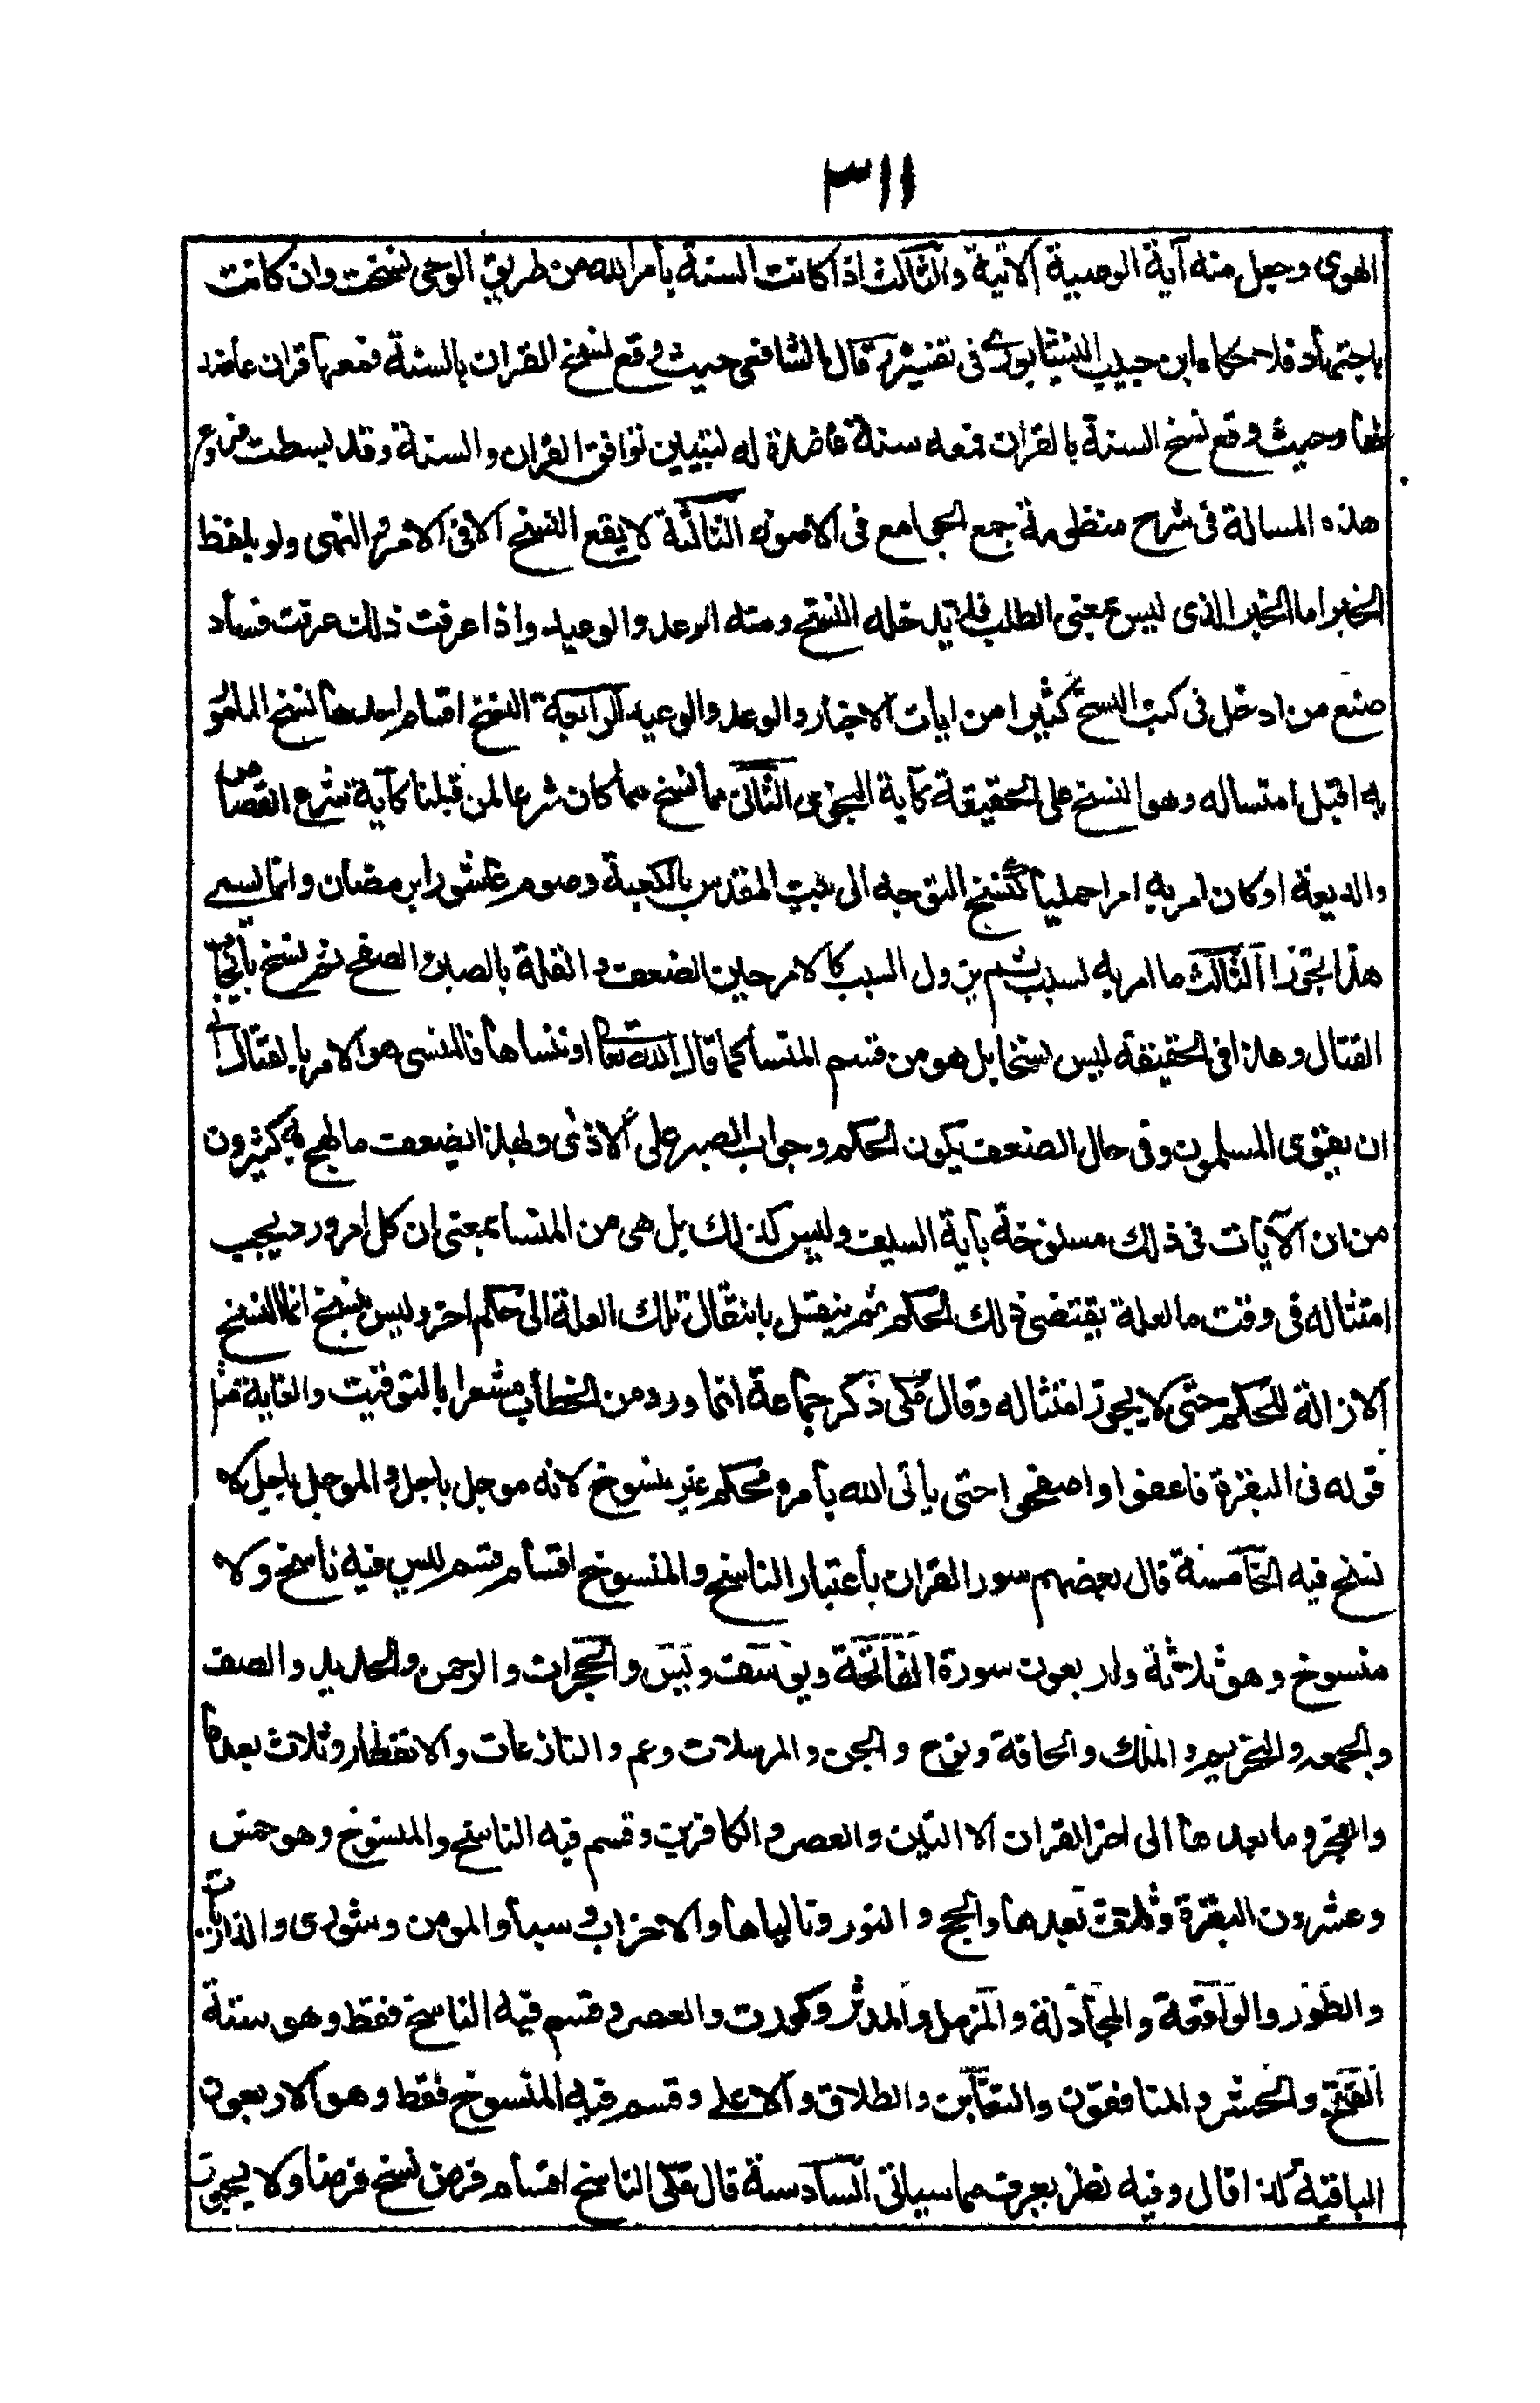 ٣١١
الهوى وجعل منه آية الوصية الاتية والثالث اذا كانت السنة بامر الله من طريق الوحى نسخت وان كانت
باجتهاد فلا حكاه ابن حبيب النيسابورى فى تفسيره قال الشافعى حيث وقع نسخ القران بالسنة فمعها قران عاضد
لها وحيث وقع نسخ السنة بالقران فمعه سنة عاضدة له ليتبين توافق القران والسنة وقد بسطت فروع
هذه المسالة فى شرح منظومة جمع الجوامع فى الاصول الثالثة لا يقع النسخ الا فى الامر والنهى ولو بلفظ
الخبر اما الخبر الذى ليس بمعنى الطلب فلا يدخله النسخ ومنه الوعد والوعيد واذا عرفت ذلك عرفت فساد
صنع من ادخل فى كتب النسخ كثيرا من ايات الاخبار والوعد والوعيد الرابعة النسخ اقسام احدها نسخ المامو
ر به اقبل امتساله وهو النسخ على الحقيقة كآية النجوى الثانى مما نسخ مما كان شرعا لمن قبلنا كآية شرع القصاص
والدية او كان امر به امرا جمليا كنسخ التوجه الى بيت المقدس بالكعبة وصوم عاشورا برمضان وانما يسمى
هذا تجوزا الثالث ما امر به لسبب ثم يزول السبب كالامر حين الضعف والقلة بالصبر والصفح ثم نسخ بايجاب
القتال وهذا فى الحقيقة ليس نسخا بل هو من قسم المنسأ كما قال الله تعا او ننسأها فالمنسى هو الامر بالقتال الى
ان يقوى المسلمون وفى حال الضعف يكون الحكم وجواب الصبر على الاذى ولهذا يضعف ما لهج به كثيرون
من ان الآيات فى ذلك مسنوخة بآية السيف وليس كذلك بل هى من المنسأ بمعنى ان كل امر ورد يجب
امتثاله فى وقت ما لعلة يقتضى ذلك الحكم ثم ينتقل بانتقال تلك العلة الى حكم اخر وليس بنسخ انما النسخ
الازالة للحكم حتى لا يجوز امتثاله وقال مكى ذكر جماعة انما ورد من الخطاب مشعرا بالتوقيت والغاية مثل
قوله فى البقرة فاعفوا واصفحوا حتى يأتى الله بأمره محكم غير منسوخ لانه موجل باجل والموجل باجل لا
نسخ فيه الخامسة قال بعضهم سور القران باعتبار الناسخ والمنسوخ اقسام قسم ليس فيه ناسخ ولا
منسوخ وهو ثلاثة واربعون سورة الفاتحة ويوسف ويس والحجرات والرحمن والحديد والصف
والجمعه والتحريم والملك والحاقة ونوح والجن والمرسلات وعم والنازعات والانفطار وثلاث بعدها
والفجر وما بعدها الى اخر القران الا التين والعصر والكافرين وقسم فيه الناسخ والمنسوخ وهو خمس
وعشرون البقرة وثلاث بعدها والحج والنور وتالياها والاحزاب وسبأ والمومن وشورى والذاريات
والطور والواقعة والمجادلة والمزمل والمدثر وكورت والعصر وقسم فيه الناسخ فقط وهو ستة
الفتح والحشر والمنافقون والتغابن والطلاق والاعلى وقسم فيه المنسوخ فقط وهو الاربعون
الباقية كذا قال وفيه نظر يعرف مما سياتى السادسة قال مكى الناسخ اقسام فرض نسخ فرضا ولا يجوز